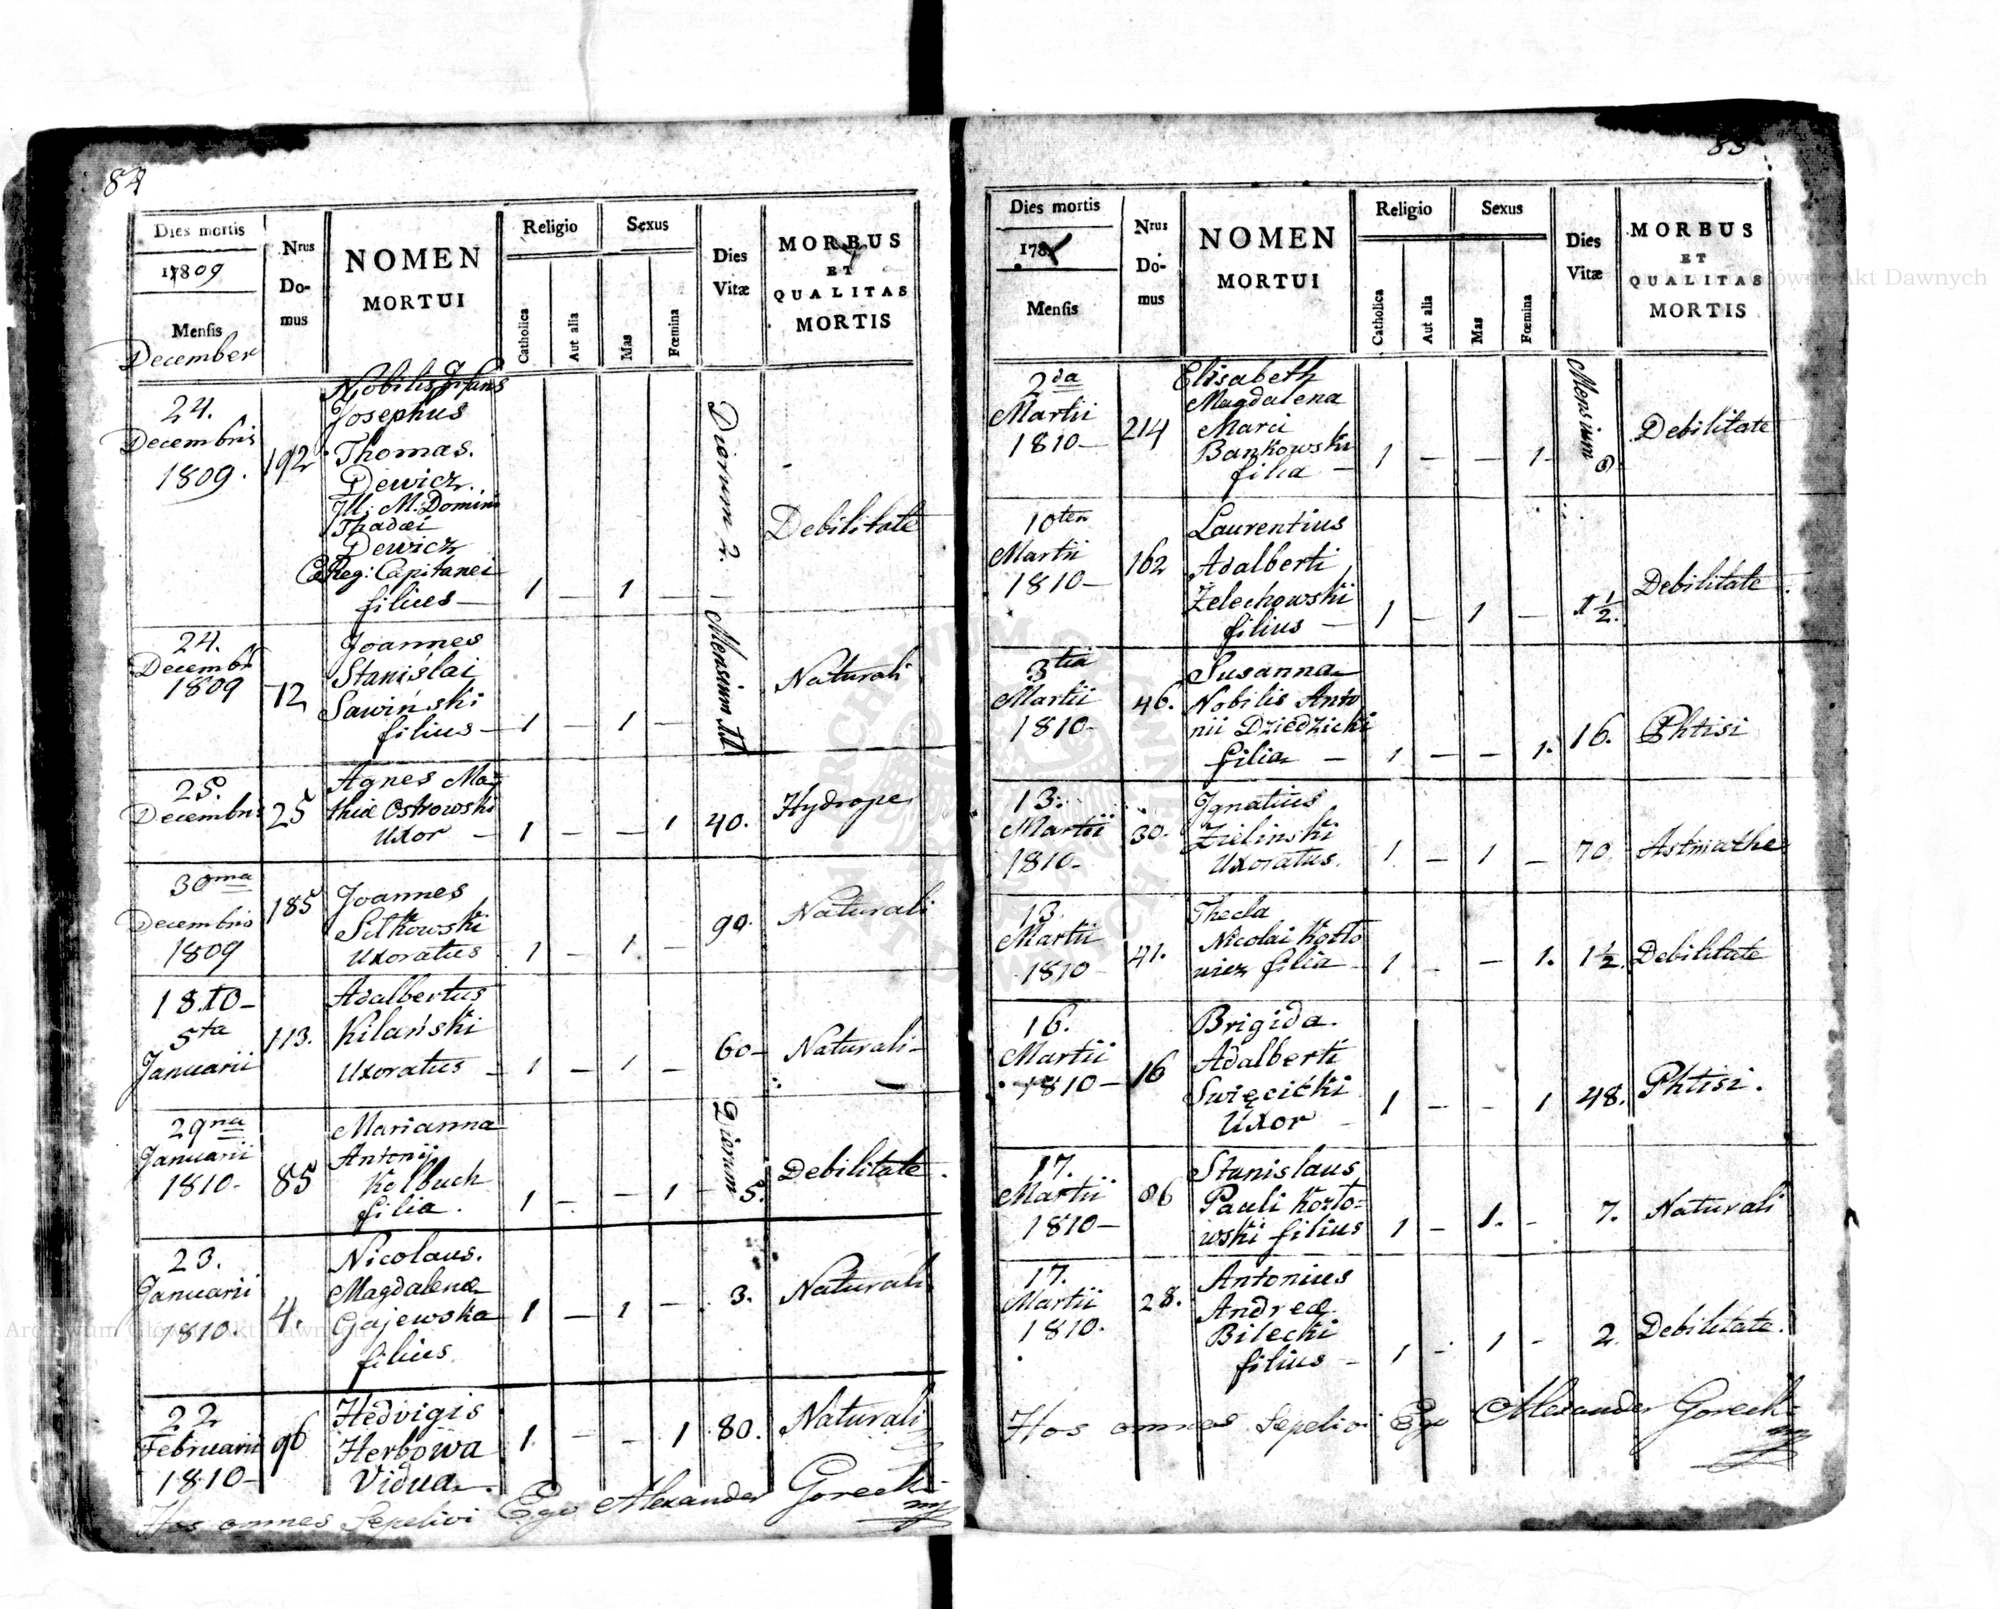 84
Dies mortis
1809
Mensis
December
Nrus
Do-
mus
NOMEN
MORTUI
Religio
Catholica
Aut alia
Sexus
Mas
Fœmina
Dies
Vitæ
MORBUS
ET
QUALITAS
MORTIS
24.
Decembris
1809.
192
Nobilis Infans
Josephus
Thomas.
Dewicz.
Ill: M: Domini
Thadæi
Dewicz
Reg: Capitanei
filius
1 — 1 —
Dierum 2.
Debilitate
24.
Decembr
1809
72
Joannes
Stanislai
Sawiński
filius
1 — 1 —
Mensium
Naturali
25.
Decembris
25
Agnes Ma
thiæ Ostrowski
Uxor
1 — — 1
40.
Hydrope
30ma
Decembris
1809
185
Joannes
Sitkowski
Uxoratus
1 — 1 —
90.
Naturali
1810
5ta
Januarii
113.
Adalbertus
Kilański
Uxoratus
1 — 1 —
60
Naturali
29na
Januarii
1810
85
Marianna
Antonii
Kelbuch
filia.
1 — — 1
Dierum 5.
Debilitate.
23.
Januarii
1810
4.
Nicolaus.
Magdalenæ
Gajewska
filius.
1 — 1 —
3.
Naturali
22
Februarii
1810
96
Hedvigis
Herbowa
Vidua.
1. — — 1
80.
Naturali
Hos omnes Sepelivi Ego Alexander Gorecki
mp
85
Dies mortis
178
Mensis
Nrus
Do-
mus
NOMEN
MORTUI
Religio
Catholica
Aut alia
Sexus
Mas
Fœmina
Dies
Vitæ
MORBUS
ET
QUALITAS
MORTIS
2da
Martii
1810
214
Elisabeth
Magdalena
Marii
Bankowski
filia
1 — — 1
Mensium
Debilitate
10ten
Martii
1810
162
Laurentius
Adalberti
Żelechowski
filius
1 — 1 —
1 1/2.
Debilitate.
3tia
Martii
1810
46.
Susanna
Nobilis Anto
nii Dziedzicki
filia
1 — — 1.
16.
Phtisi
13.
Martii
1810
30.
Ignatius
Zielinski
Uxoratus.
1 — 1 —
70.
Astmathe
13.
Martii
1810
41.
Thecla
Nicolai Kotlo
wicz filia
1 — — 1.
1 1/2.
Debilitate
16.
Martii
1810
16
Brigida.
Adalberti
Święcicki
Uxor
1 — — 1
48.
Phtisi.
17.
Martii
1810
86
Stanislaus
Pauli Kozło=
wski filius
1 — 1. —
7.
Naturali
17.
Martii
1810.
28.
Antonius
Andreæ
Bilecki
filius
1 — 1 —
2.
Debilitate.
Hos omnes Sepelivi Ego Alexander Gorecki
mp
Archiwum Główne Akt Dawnych
Archiwum Główne Akt Dawnych
ARCHIWUM GŁÓWNE AKT DAWNYCH